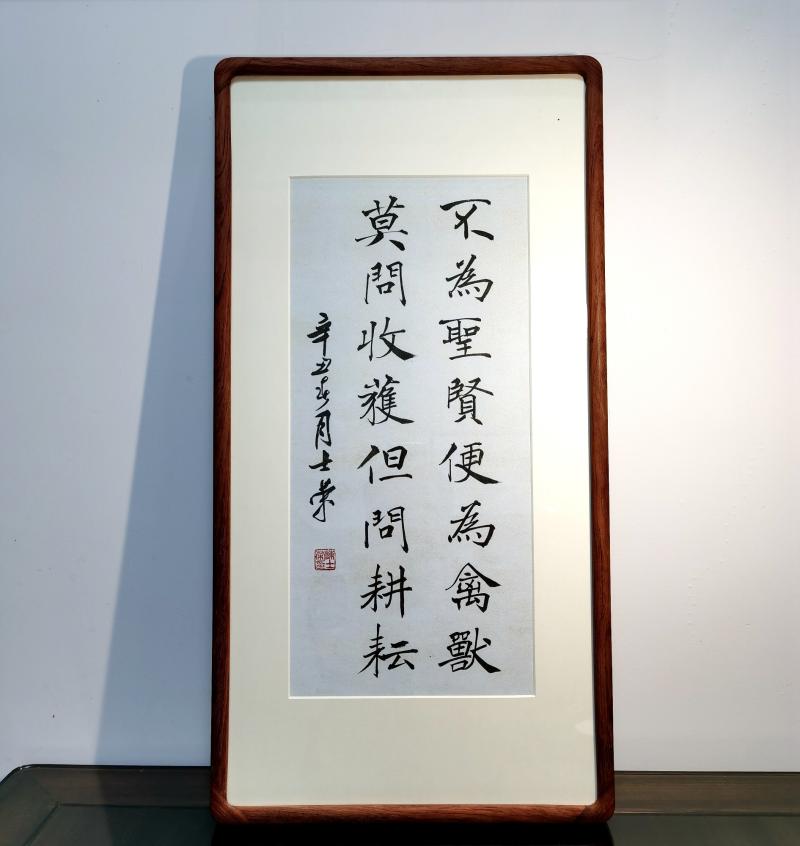 不為聖賢便為禽獸
莫問收獲但問耕耘
辛丑春月士榮